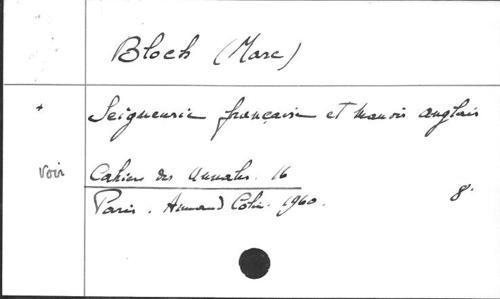 Bloch (Marc)
+ Seigneurie française et manoir anglais
voir Cahiers des Annales. 16
Paris. Armand Colin. 1960. 8°